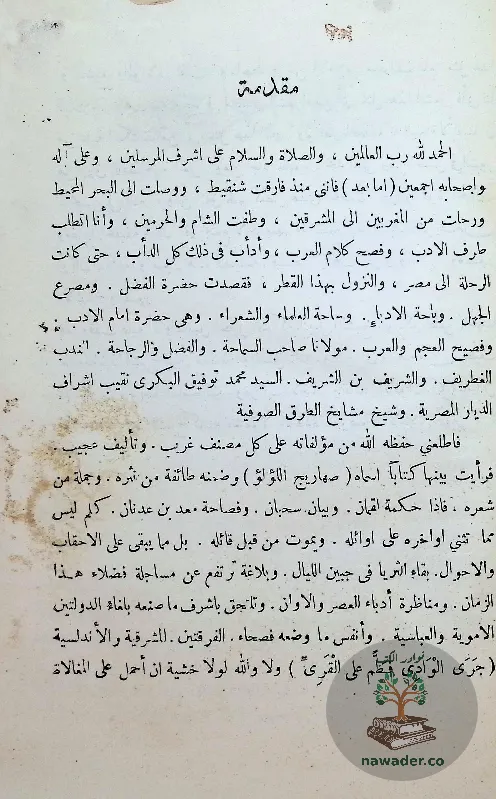 مقدمة
الحمد لله رب العالمين ، والصلاة والسلام على اشرف المرسلين ، وعلى آله
واصحابه اجمعين ( اما بعد ) فانى منذ فارقت شنقيط ، ووصلت الى البحر المحيط
ورحات من المغربين الى المشرقين ، وطفت الشام والحرمين ، وأنا اتطلب
طرف الادب ، وفصح كلام العرب ، وأدأب فى ذلك كل الدأب ، حتى كانت
الرحلة الى مصر ، والنزول بهذا القطر ، فقصدت حضرة الفضل . ومصرع
الجهل . وباحة الادباء . وساحة العلماء والشعراء . وهى حضرة امام الادب .
وفصيح العجم والعرب . مولانا صاحب السماحة . والفضل والرجاحة . الندب
الغطريف . والشريف بن الشريف . السيد محمد توفيق البكرى نقيب اشراف
الديار المصرية . وشيخ مشايخ الطرق الصوفية
فاطلعنى حفظه الله من مؤلفاته على كل مصنف غريب . وتأليف عجيب .
فرأيت بينها كتابا اسماه ( صهاريج اللؤلؤ ) وضمنه طائفة من نثره . وجملة من
شعره . فاذا حكمة لقمان . وبيان سحبان . وفصاحة معد بن عدنان . كلم ليس
مما تثنى اواخره على اوائله . ويموت من قبل قائله . بل مما يبقى على الاحقاب
والاحوال . بقاء الثريا فى جبين الليال . وبلاغة ترتفع عن مساجلة فضلاء هذا
الزمان . ومناظرة أدباء العصر والاوان . وتلتحق باشرف ما صنعه بلغاء الدولتين
الاموية والعباسية . وأنفس ما وضعه فصحاء . الفرقتين . المشرقية والأندلسية
( جَرَى الْوَادِي فَطَمَّ على الْقَرِىِّ ) ولا والله لولا خشية ان أحمل على المغالاة
نوادر الكتب
nawader.co